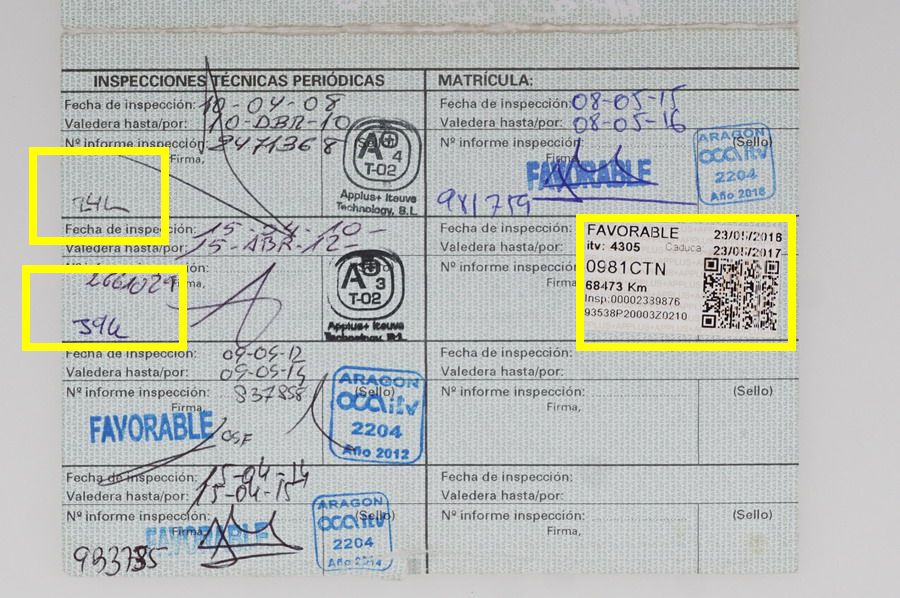 INSPECCIONES TÉCNICAS PERIÓDICAS
Fecha de inspección: 10-04-08
Valedera hasta/por: 10-ABR-10
Nº informe inspección: 8471368
Firma,
A 4
T-02
Applus+ Iteuve
Technology, S.L
Fecha de inspección: 15-04-10-
Valedera hasta/por: 15-ABR-12-
Nº informe inspección:
Firma,
39k
A 3
T-02
Applus+ Iteuve
Technology, S.L.
Fecha de inspección: 09-05-12
Valedera hasta/por: 09-05-14
Nº informe inspección: 837858
(Sello)
Firma,
FAVORABLE
ARAGON
oca itv
2204
Año 2012
Fecha de inspección: 15-04-14
Valedera hasta/por: 15-04-15
Nº informe inspección:
(Sello)
Firma,
FAVORABLE
993735
ARAGON
oca itv
2204
Año 2014
MATRÍCULA:
Fecha de inspección: 08-05-15
Valedera hasta/por: 08-05-16
Nº informe inspección:
(Sello)
Firma,
FAVORABLE
981759
ARAGON
oca itv
2204
Fecha de inspección:
Valedera hasta/por:
Nº informe inspección:
Firma,
FAVORABLE 23/05/2016
itv: 4305 Caduca: 23/05/2017
0981CTN
68473 Km
Insp:00002339876
93538P20003Z0210
Fecha de inspección:
Valedera hasta/por:
Nº informe inspección:
(Sello)
Firma,
Fecha de inspección:
Valedera hasta/por:
Nº informe inspección:
(Sello)
Firma,